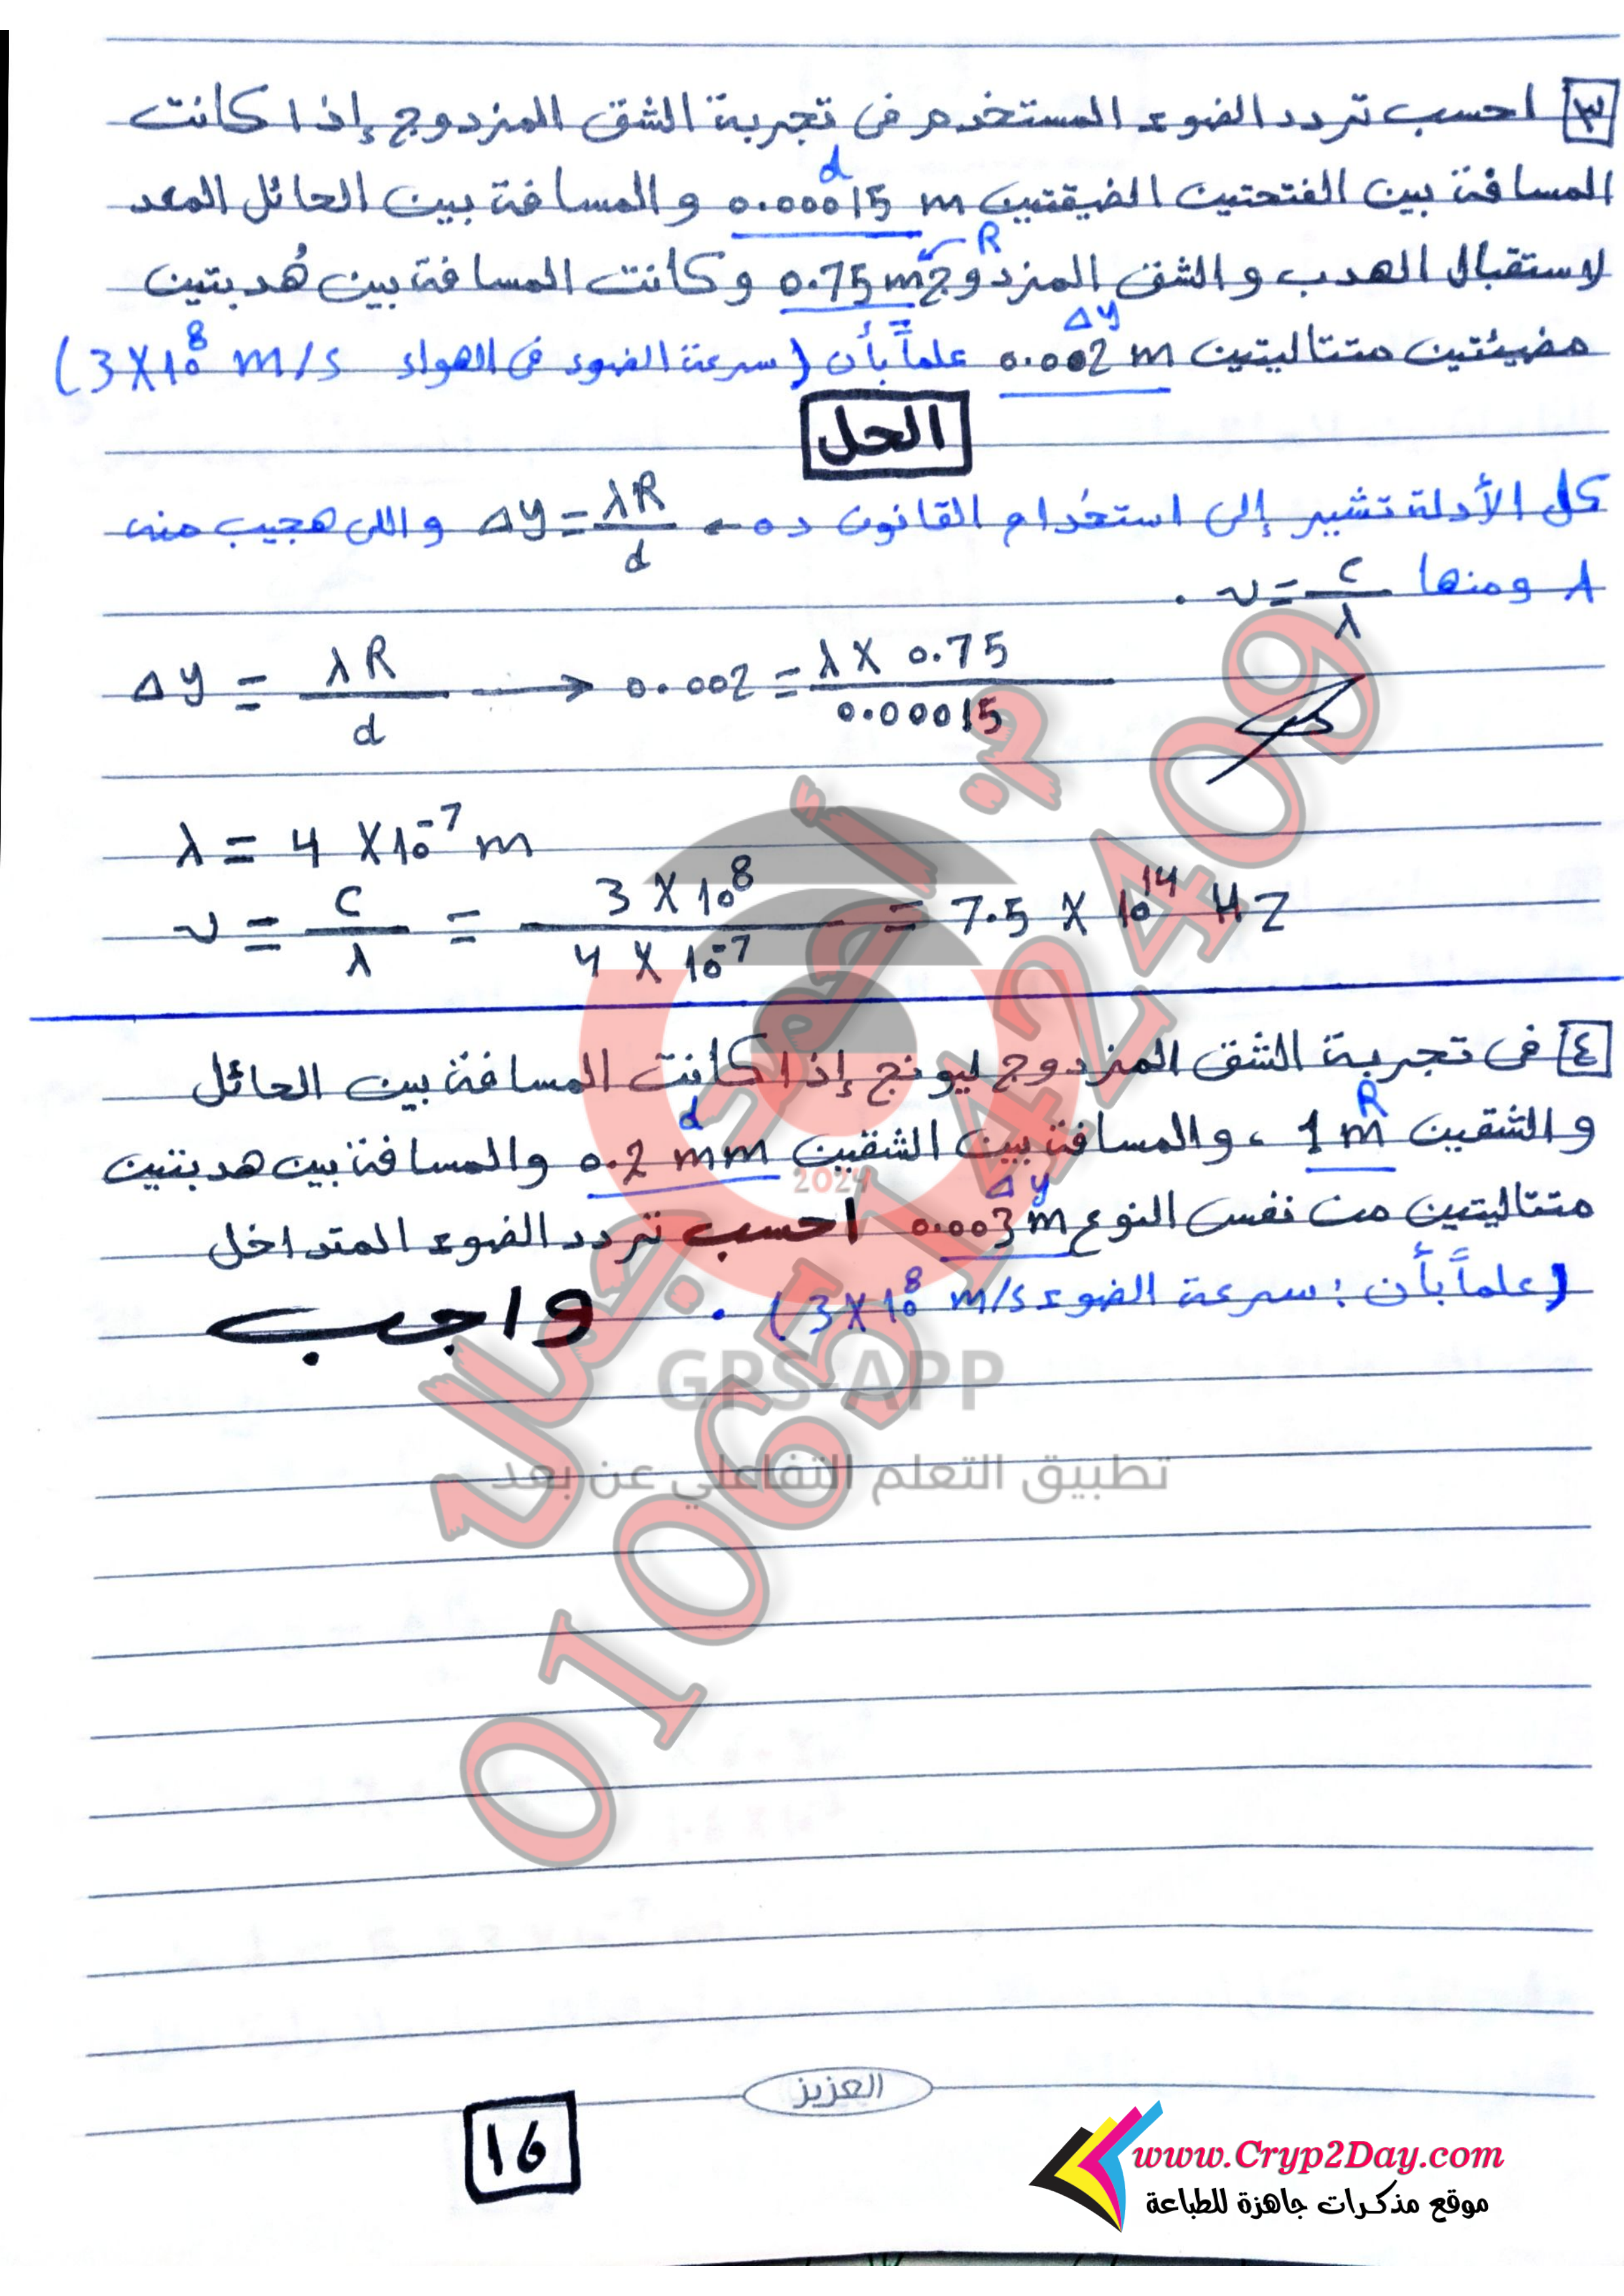 ٣ احسب تردد الضوء المستخدم فى تجربة الشق المزدوج إذا كانت
d
المسافة بين الفتحتين الضيقتين 0.00015 m والمسافة بين الحائل المعد
R
لاستقبال الهدب والشق المزدوج 0.75 m وكانت المسافة بين هُدبتين
Δy
مضيئتين متتاليتين 0.002 m علماً بأن (سرعة الضوء فى الهواء 3X10^8 m/s)
الحل
كل الأدلة تشير إلى استخدام القانون ده ← Δy = λR/d واللى هجيب منه
λ ومنها ν = c/λ .
Δy = λR/d → 0.002 = λ X 0.75/0.00015
λ = 4 X10^-7 m
ν = c/λ = 3 X10^8/4 X 10^-7 = 7.5 X 10^14 HZ
٤ فى تجربة الشق المزدوج ليونج إذا كانت المسافة بين الحائل
R
والشقين 1 m ، والمسافة بين الشقين 0.2 mm والمسافة بين هدبتين
d
متتاليتين من نفس النوع 0.003 m احسب تردد الضوء المتداخل
Δy
(علماً بأن : سرعة الضوء 3X10^8 m/s) .
واجب
م. أحمد جمال
01065142409
2024
GPS-APP
تطبيق التعلم التفاعلي عن بعد
العزيز
16
www.Cryp2Day.com
موقع مذكرات جاهزة للطباعة